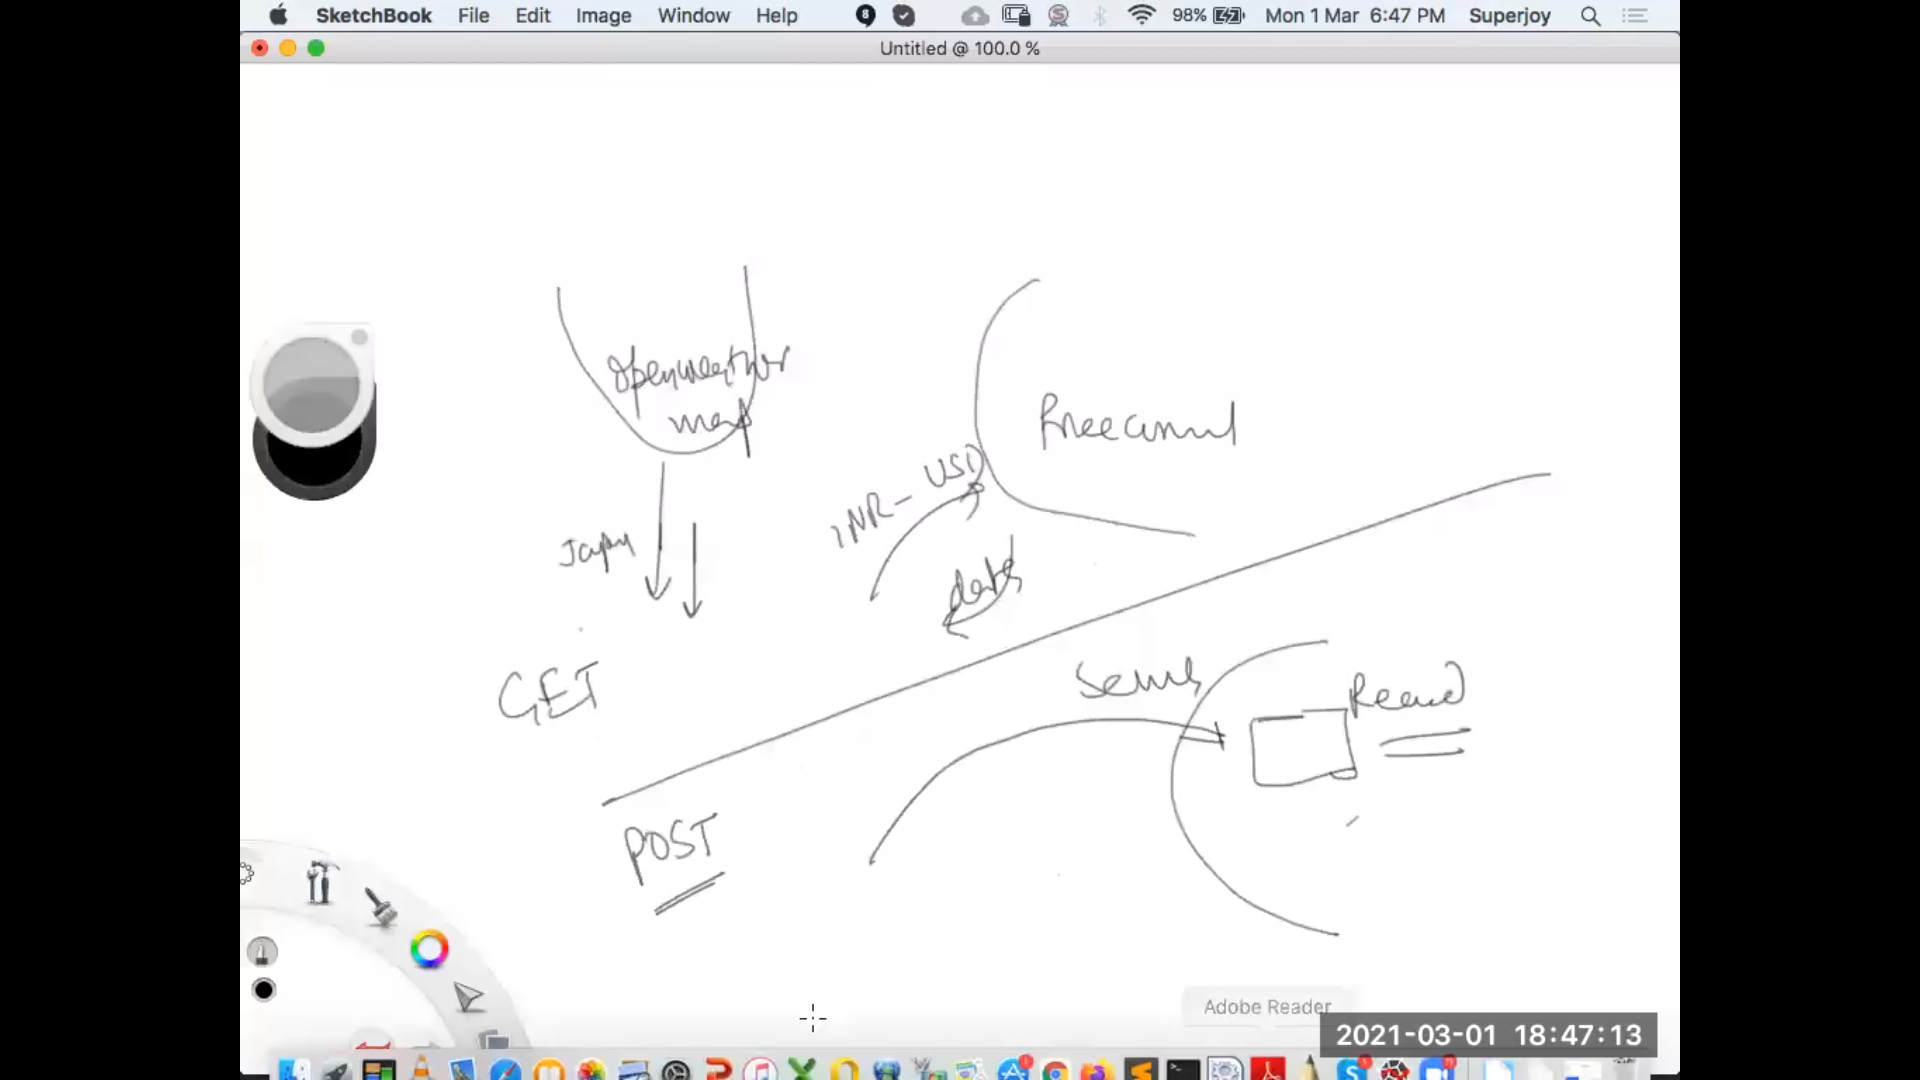 SketchBook File Edit Image Window Help 8 98% Mon 1 Mar 6:47 PM Superjoy
Untitled @ 100.0 %
Openweather
map
INR - USD
data
GET
Send
POST
Adobe Reader
2021-03-01 18:47:13